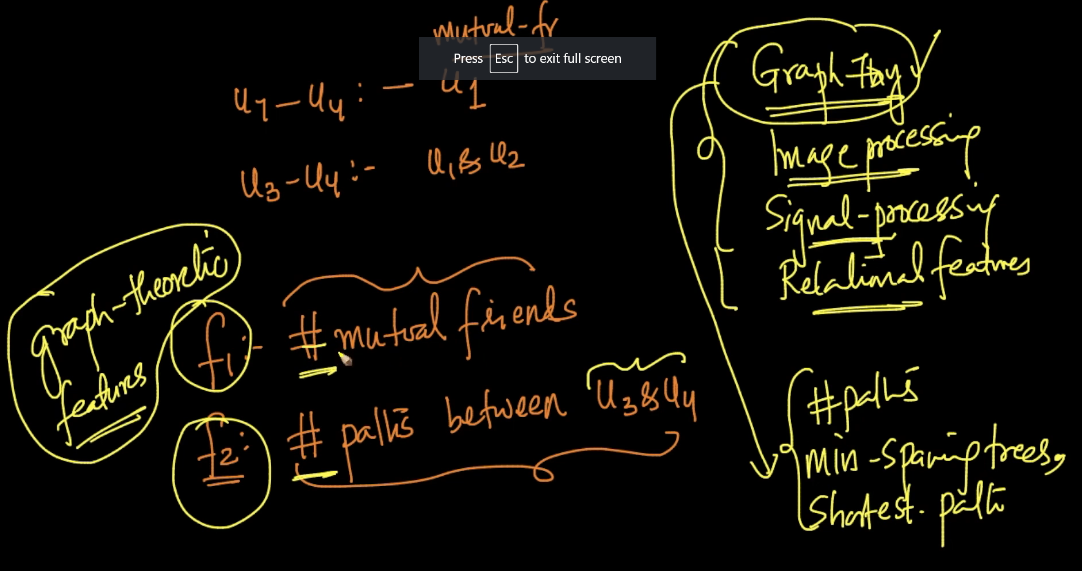 mutual-fr
Press Esc to exit full screen
u7-u4:- u1
u3-u4:- u1 & u2
graph-theoretic
features
f1:- # mutual friends
f2: # paths between u3 & u4
Graph-Thoy
Image processing
Signal-processing
Relational features
#paths
min-spaning trees,
Shortest-path